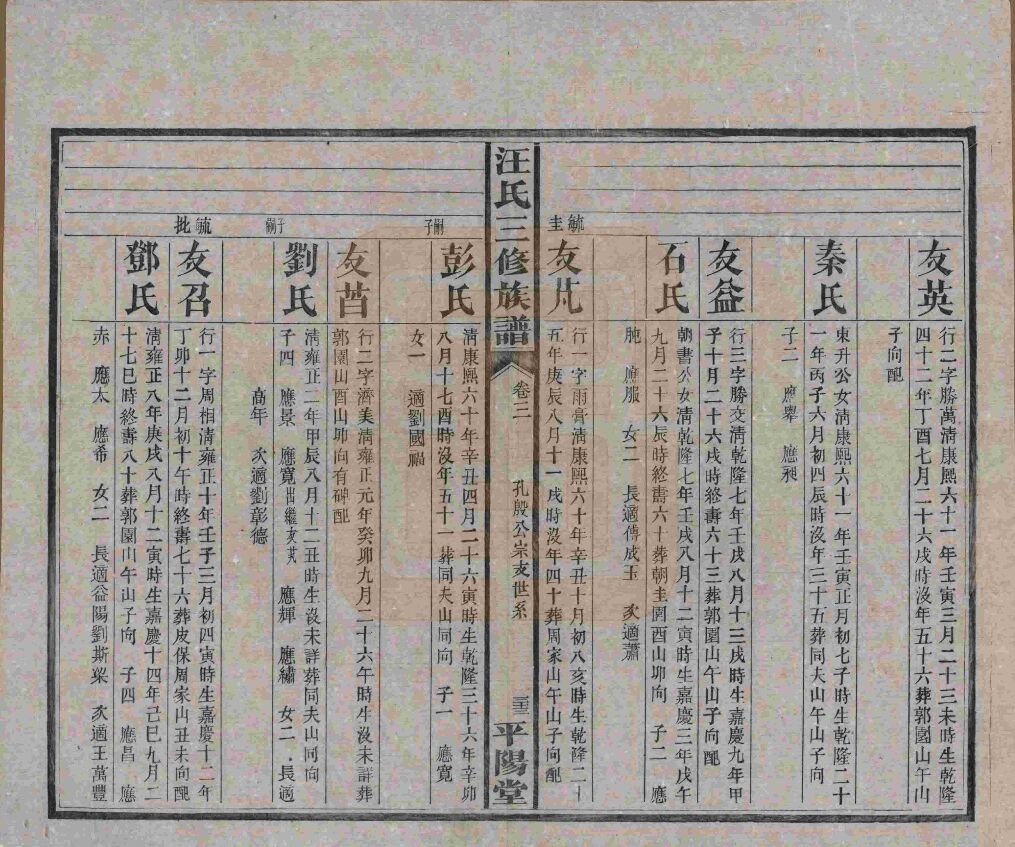 友英
行二字勝萬清康熙六十一年壬寅三月二十三未時生乾隆
四十二年丁酉七月二十六戌時沒年五十六葬郭園山午山
子向配
秦氏
東升公女清康熙六十一年壬寅正月初七子時生乾隆二十
一年丙子六月初四辰時沒年三十五葬同夫山午山子向
子二 應舉 應昶
友益
行三字勝交清乾隆七年壬戌八月十三戌時生嘉慶九年甲
子十月二十六戌時終壽六十三葬郭園山午山子向配
石氏
朝書公女清乾隆七年壬戌八月十二寅時生嘉慶三年戊午
九月二十六辰時終壽六十葬朝圭園酉山卯向 子二 應
應服 女二 長適傅成玉 次適蕭
毓圭
友芃
行一字雨膏清康熙六十年辛丑十月初八亥時生乾隆二十
五年庚辰八月十一戌時沒年四十葬周家山午山子向配
汪氏三修族譜
卷三
孔殷公宗支世系
平陽堂
嗣子
彭氏
清康熙六十年辛丑四月二十六寅時生乾隆三十六年辛卯
八月十七酉時沒年五十一葬同夫山同向 子一 應寬
女一 適劉國福
友苩
行二字濟美清雍正元年癸卯九月二十六午時生沒未詳葬
郭園山酉山卯向有碑配
子嗣
劉氏
清雍正二年甲辰八月十二丑時生沒未詳葬同夫山同向
子四 應景 應寬出繼友芃 應輝 應繡 女二 長適
高年 次適劉彰德
毓批
友召
行一字周相清雍正十年壬子三月初四寅時生嘉慶十二年
丁卯十二月初十午時終壽七十六葬皮保周家山丑未向配
鄧氏
清雍正八年庚戌八月十二寅時生嘉慶十四年己巳九月二
十七巳時終壽八十葬郭園山午山子向 子四 應昌 應
赤 應太 應希 女二 長適益陽劉斯樂 次適王萬豐